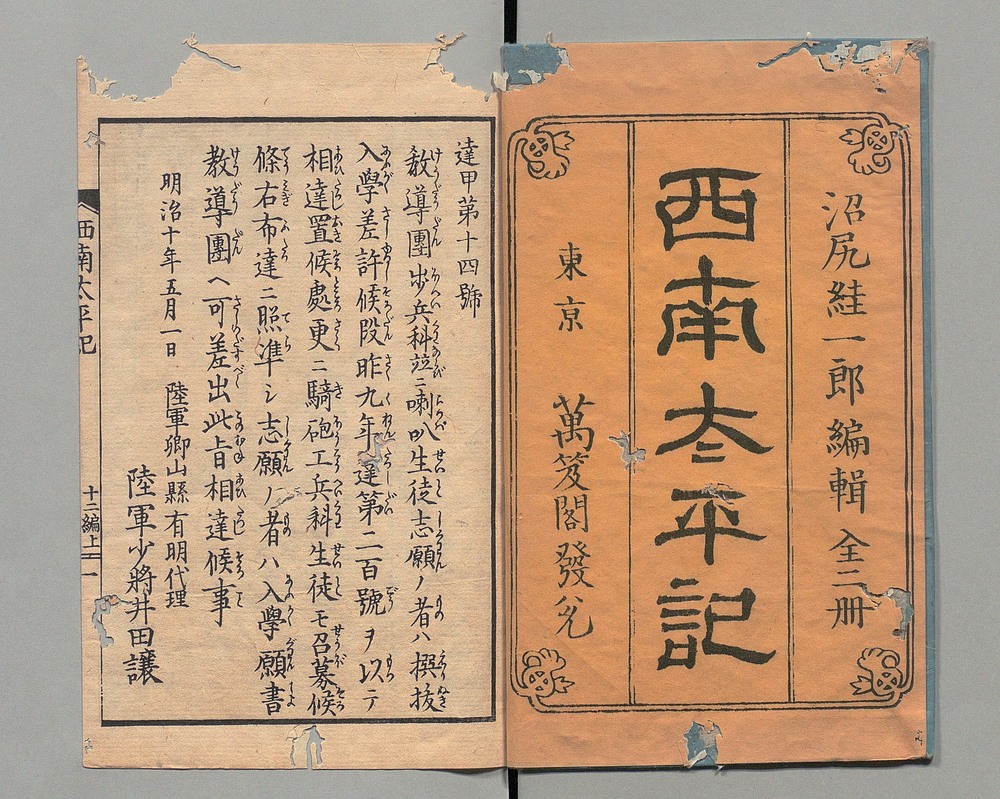 沼尻絓一郎編輯 全二册
西南太平記
東京 萬笈閣發兌
達甲第十四號
教導團歩兵科竝ニ喇叭生徒志願ノ者ハ撰抜
入學差許候段昨九年達第二百號ヲ以テ
相達置候處更ニ騎砲工兵科生徒モ召募候
條右布達ニ照準シ志願ノ者ハ入學願書
教導團へ可差出此旨相達候事
明治十年五月一日 陸軍卿山縣有朋代理
陸軍少將井田讓
西南太平記 十二編上 一